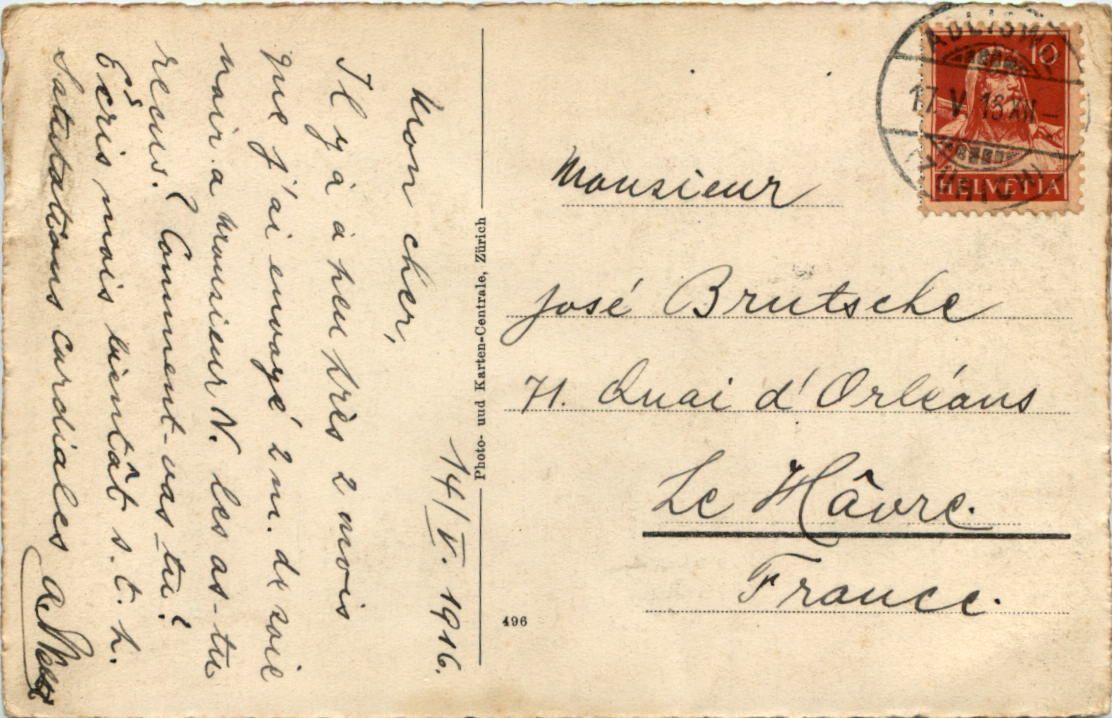 14/V. 1916.
Mon cher,
Il y a à peu près 2 mois
que j'ai envoyé 2 m. de soie
noir a monsieur N. les as-tu
recus? Comment-vas-tu?
Ecris mois bientôt s. t. h.
Salutations cordiales
Photo- und Karten-Centrale, Zürich
496
Monsieur
José Brutsche
71. Quai d'Orléans
Le Hâvre.
France.
10
HELVETIA
17. V. 16 XII
(ZÜRICH)